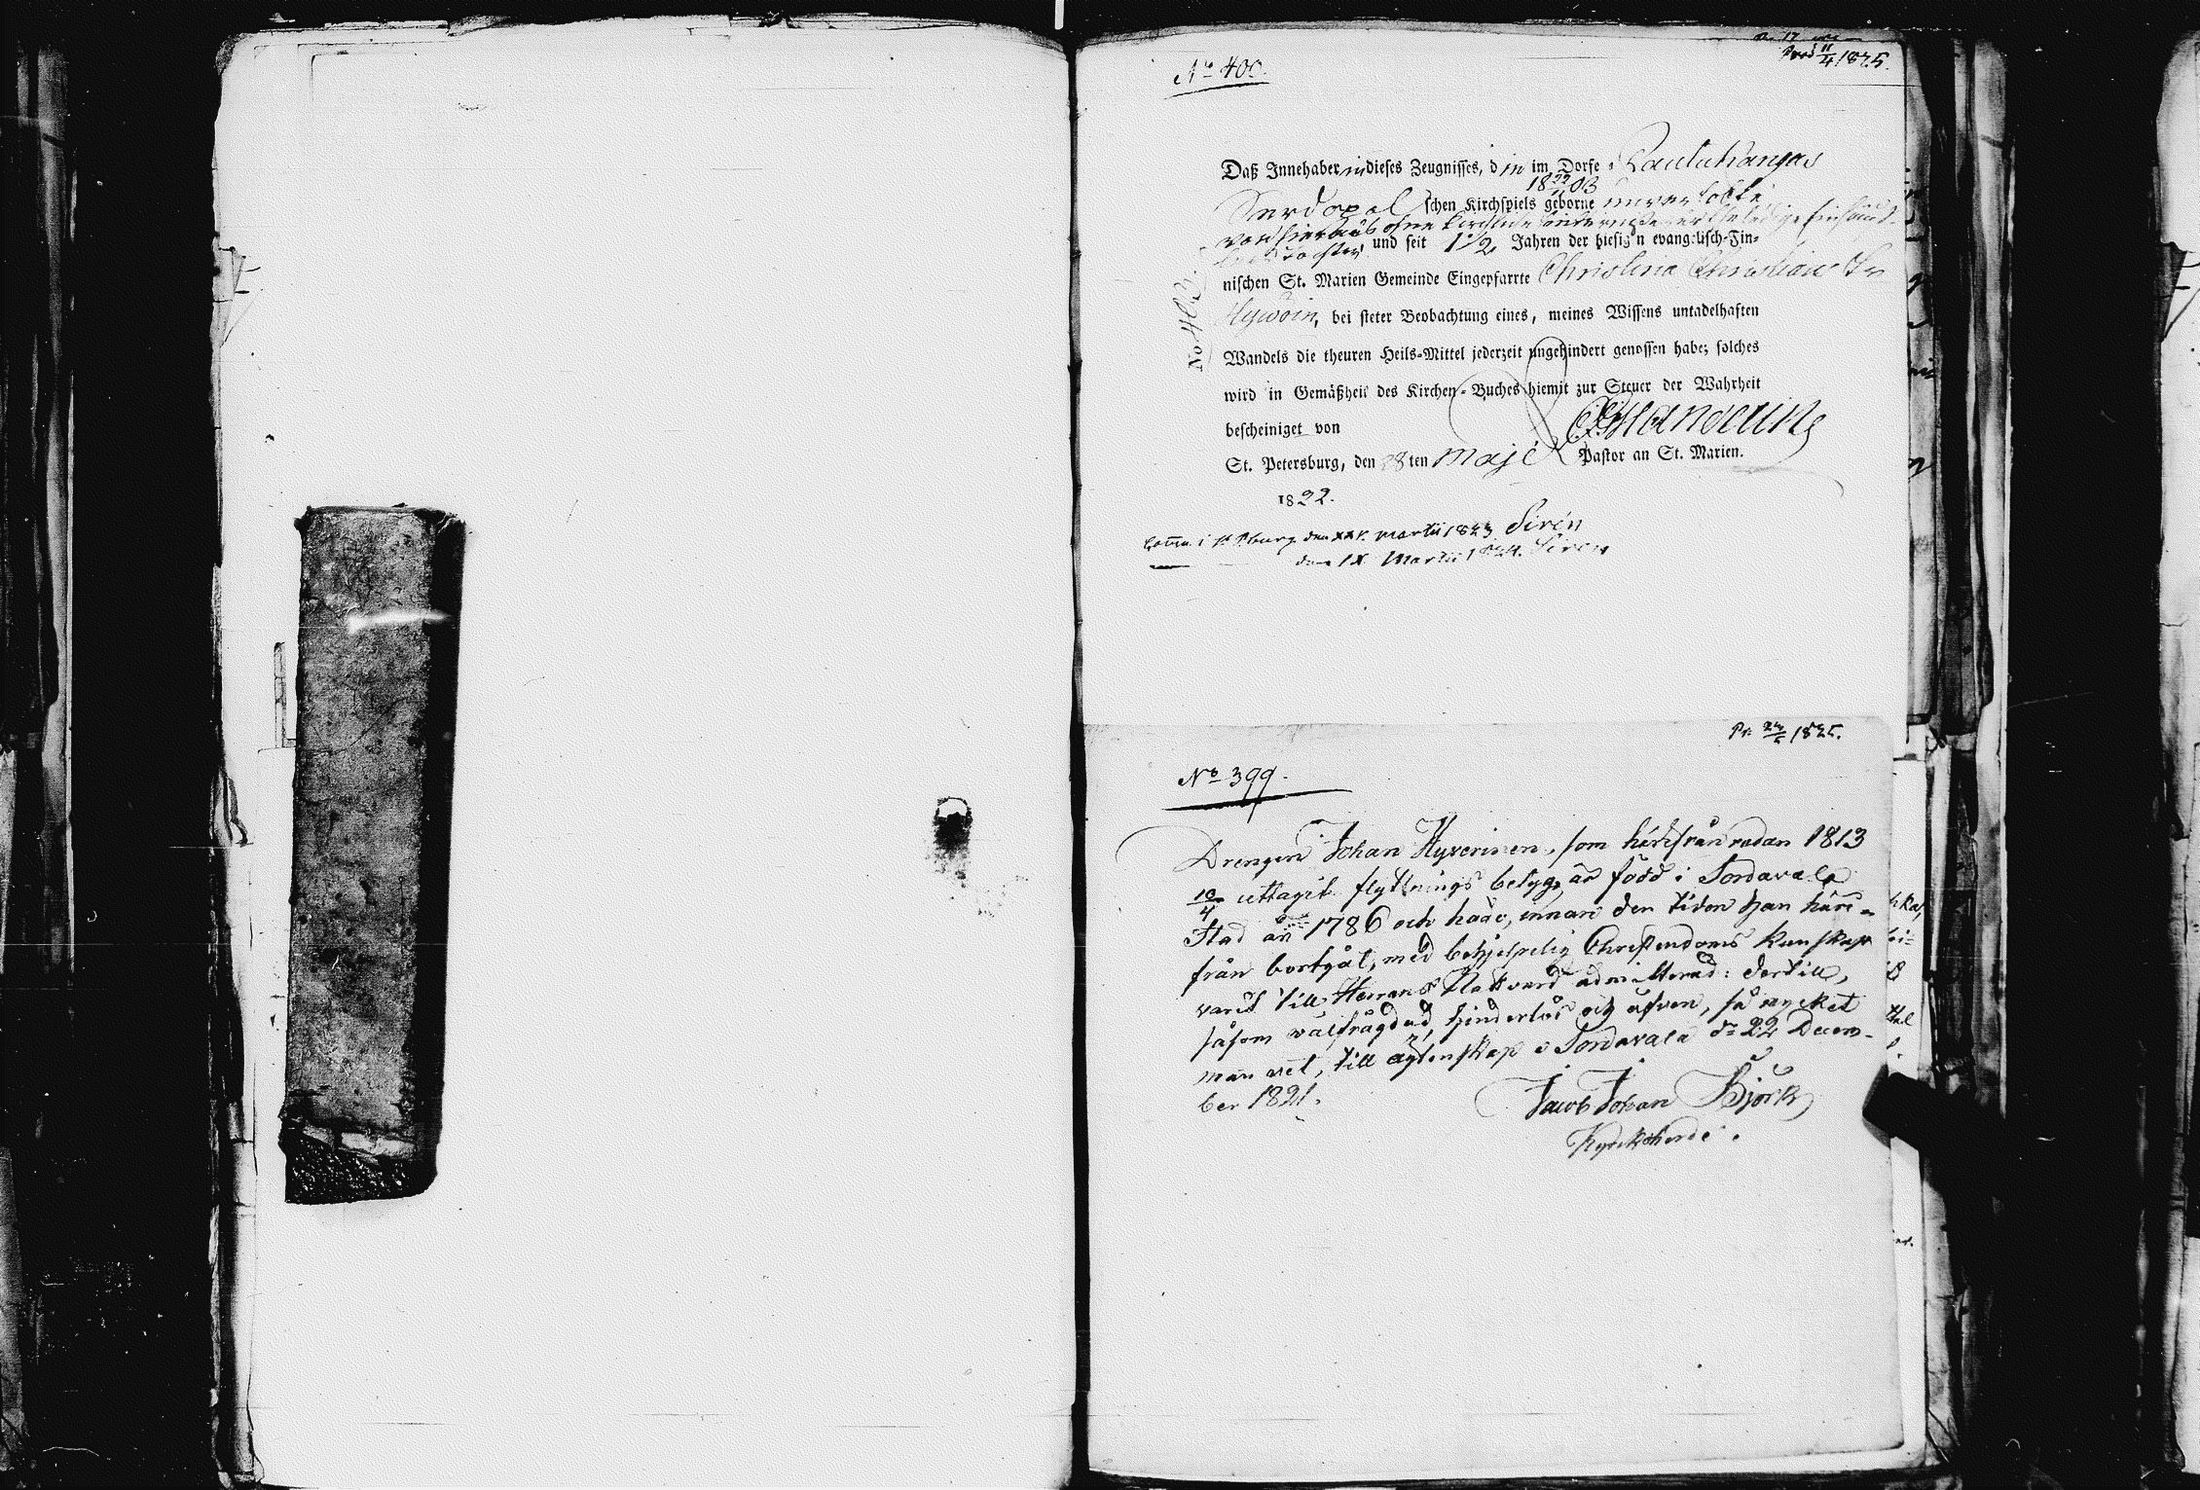 Nº 400.
Prod 11/4 1825.
Daß Innehaberin dieses Zeugnisses, din im Dorfe Rautukangas
18 22/11 03
Serdopol schen Kirchspiels geborne unverlobte
von hier aus ohne kirchliche
Tochter und seit 1 1/2 Jahren der hiesig'n evangelisch-Fin-
nischen St. Marien Gemeinde Eingepfarrte Christina Christians Tr
Hywöin, bei steter Beobachtung eines, meines Wissens untadelhaften
Wandels die theuren Heils-Mittel jederzeit ungehindert genossen habe; solches
wird in Gemäßheit des Kirchen-Buches hiemit zur Steuer der Wahrheit
bescheiniget von
St. Petersburg, den 28ten Maji Pastor an St. Marien.
1822.
Comm. i St Pburg den XXV. Martii 1823 Sirén
den IX Martii 1824. Siren
Pr. 1825.
Nº 399.
Drengen Johan Hyverinen, som härifrån redan 1813
10/4 uttagit flyttnings betyg, är född i Sordavala
Stad år 1786 och hade, innan den tiden han häri-
från bortgåt, med behjelpelig Christendoms kunskap
varit till Herrans Nattvard admitterad: dertill,
såsom välfrägdad, hinderlös och äfven, så mycket
man vet, till ägtenskap. Sordavala dn 22 Decem-
ber 1821.
Jacob Johan Björk
Kyrckoherde.